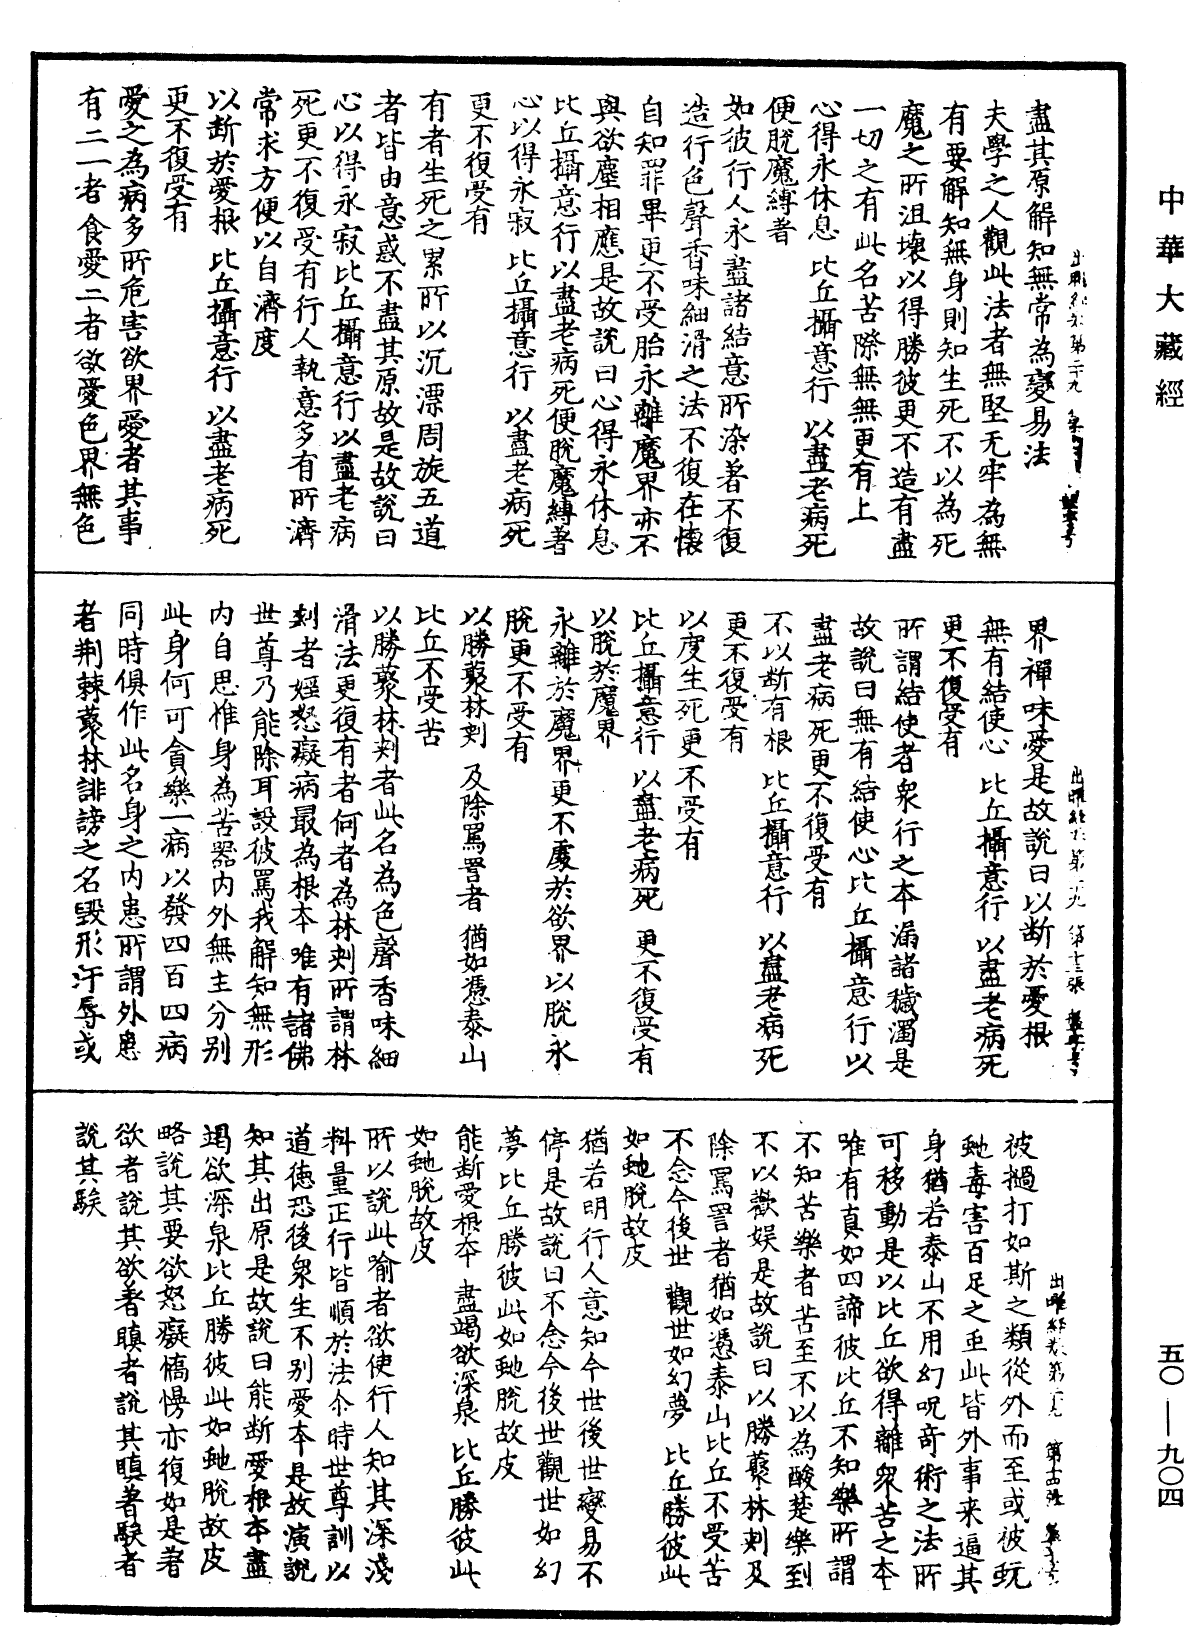 中華大藏經
盡其原解知無常為變易法
夫學之人觀此法者無堅无牢為無
有要解知無身則知生死不以為死
魔之所沮壞以得勝彼更不造有盡
一切之有此名苦際無無更有上
心得永休息 比丘攝意行 以盡老病死
便脫魔縛著
如彼行人永盡諸結意所染著不復
造行色聲香味細滑之法不復在懷
自知罪畢更不受胎永離魔界亦不
與欲塵相應是故說曰心得永休息
比丘攝意行以盡老病死便脫魔縛著
心以得永寂 比丘攝意行 以盡老病死
更不復受有
有者生死之累所以沉漂周旋五道
者皆由意惑不盡其原故是故說曰
心以得永寂比丘攝意行以盡老病
死更不復受有行人執意多有所濟
常求方便以自濟度
以斷於愛根 比丘攝意行 以盡老病死
更不復受有
愛之為病多所危害欲界愛者其事
有二一者食愛二者欲愛色界無色
界禪味愛是故說曰以斷於愛根
無有結使心 比丘攝意行 以盡老病死
更不復受有
所謂結使者衆行之本漏諸穢濁是
故說曰無有結使心比丘攝意行以
盡老病死更不復受有
不以斷有根 比丘攝意行 以盡老病死
更不復受有
以度生死更不受有
比丘攝意行 以盡老病死 更不復受有
以脫於魔界
永離於魔界更不處於欲界以脫永
脫更不受有
以勝藂林刾 及除罵詈者 猶如憑泰山
比丘不受苦
以勝藂林刾者此名為色聲香味細
滑法更復有者何者為林刾所謂林
刾者婬怒癡病最為根本唯有諸佛
世尊乃能除耳設彼罵我解知無形
內自思惟身為苦器內外無主分别
此身何可貪樂一病以發四百四病
同時俱作此名身之內患所謂外患
者荆棘藂林誹謗之名毀形汙辱或
被撾打如斯之類從外而至或被蚖
虵毒害百足之䖝此皆外事来逼其
身猶若泰山不用幻呪奇術之法所
可移動是以比丘欲得離衆苦之本
唯有真如四諦彼比丘不知樂所謂
不知苦樂者苦至不以為酸楚樂到
不以歡娛是故說曰以勝藂林刾及
除罵詈者猶如憑泰山比丘不受苦
不念今後世 觀世如幻夢 比丘勝彼此
如虵脫故皮
猶若明行人意知今世後世變易不
停是故說曰不念今後世觀世如幻
夢比丘勝彼此如虵脫故皮
能斷愛根本 盡竭欲深泉 比丘勝彼此
如虵脫故皮
所以說此喻者欲使行人知其深淺
料量正行皆順於法尒時世尊訓以
道德恐後衆生不别愛本是故演說
知其出原是故說曰能斷愛根本盡
竭欲深泉比丘勝彼此如虵脫故皮
略說其要欲怒癡憍慢亦復如是著
欲者說其欲著瞋者說其瞋著騃者
說其騃
五〇—九〇四